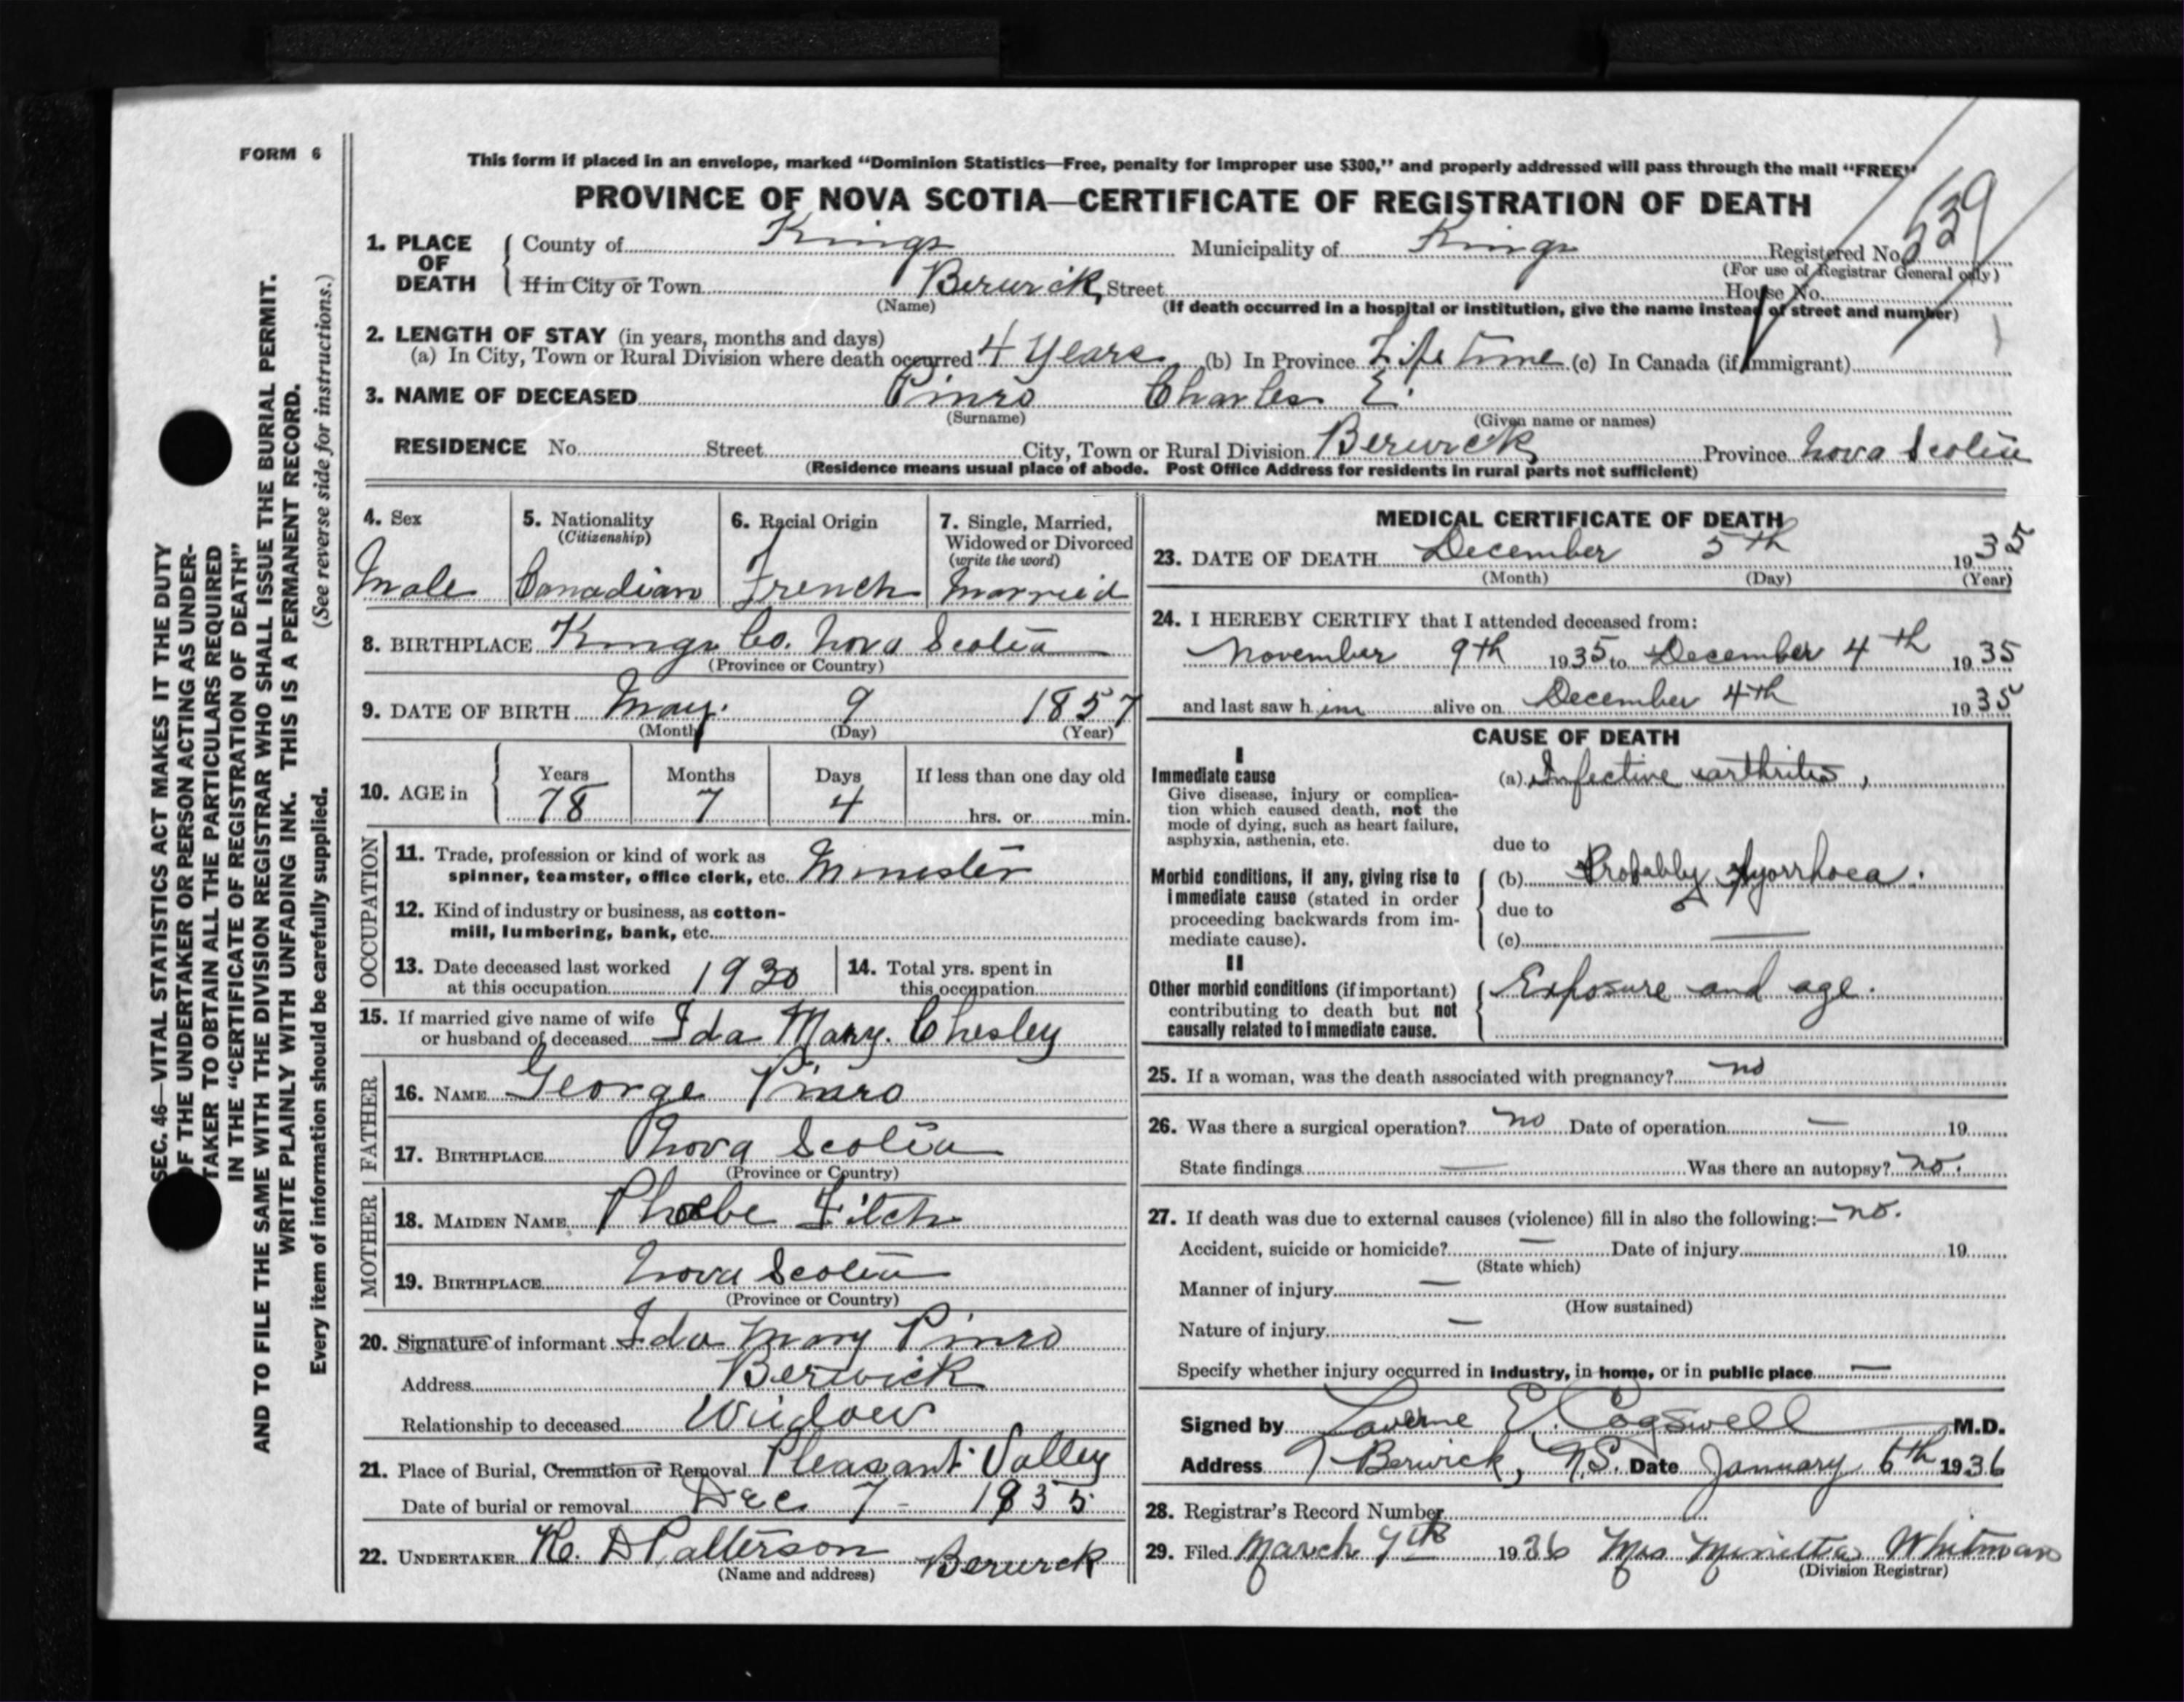 FORM 6
This form if placed in an envelope, marked "Dominion Statistics—Free, penalty for improper use $300," and properly addressed will pass through the mail "FREE"
PROVINCE OF NOVA SCOTIA—CERTIFICATE OF REGISTRATION OF DEATH
1. PLACE OF DEATH County of Kings Municipality of Kings Registered No. 539
(For use of Registrar General only)
If in City or Town Berwick, Street House No.
(Name) (If death occurred in a hospital or institution, give the name instead of street and number)
2. LENGTH OF STAY (in years, months and days)
(a) In City, Town or Rural Division where death occurred 4 Years (b) In Province Life time (c) In Canada (if immigrant)
3. NAME OF DECEASED Pinro Charles E.
(Surname) (Given name or names)
RESIDENCE No. Street City, Town or Rural Division Berwick Province Nova Scotia
(Residence means usual place of abode. Post Office Address for residents in rural parts not sufficient)
4. Sex Male
5. Nationality (Citizenship) Canadian
6. Racial Origin French
7. Single, Married, Widowed or Divorced (write the word) Married
8. BIRTHPLACE Kings Co. Nova Scotia
(Province or Country)
9. DATE OF BIRTH May 9 1857
(Month) (Day) (Year)
10. AGE in Years 78 Months 7 Days 4 If less than one day old
hrs. or min.
OCCUPATION
11. Trade, profession or kind of work as
spinner, teamster, office clerk, etc. Minister
12. Kind of industry or business, as cotton-
mill, lumbering, bank, etc.
13. Date deceased last worked at this occupation 1930
14. Total yrs. spent in this occupation
15. If married give name of wife
or husband of deceased Ida Mary. Chesley
FATHER
16. NAME George Pinro
17. BIRTHPLACE Nova Scotia
(Province or Country)
MOTHER
18. MAIDEN NAME Phoebe Fitch
19. BIRTHPLACE Nova Scotia
(Province or Country)
20. Signature of informant Ida Mary Pinro
Address Berwick
Relationship to deceased Widow
21. Place of Burial, Cremation or Removal Pleasant Valley
Date of burial or removal Dec 7 - 1935
22. UNDERTAKER Patterson Berwick
(Name and address)
MEDICAL CERTIFICATE OF DEATH
23. DATE OF DEATH December 5th 1935
(Month) (Day) (Year)
24. I HEREBY CERTIFY that I attended deceased from:
November 9th 1935 to December 4th 1935
and last saw him alive on December 4th 1935
CAUSE OF DEATH
I
Immediate cause (a) Infective arthritis,
Give disease, injury or complica-
tion which caused death, not the
mode of dying, such as heart failure,
asphyxia, asthenia, etc.
due to
Morbid conditions, if any, giving rise to
immediate cause (stated in order
proceeding backwards from im-
mediate cause).
(b) Probably Pyorrhoea.
due to
(c) —
II
Other morbid conditions (if important)
contributing to death but not
causally related to immediate cause.
Exposure and age.
25. If a woman, was the death associated with pregnancy? no
26. Was there a surgical operation? no Date of operation — 19
State findings — Was there an autopsy? no.
27. If death was due to external causes (violence) fill in also the following:— no.
Accident, suicide or homicide? — Date of injury 19
(State which)
Manner of injury —
(How sustained)
Nature of injury —
Specify whether injury occurred in industry, in home, or in public place —
Signed by Laverne E. Cogswell M.D.
Address Berwick, N.S. Date January 6th 1936
28. Registrar's Record Number
29. Filed March 7th 1936 Mrs Whitman
(Division Registrar)
SEC. 46—VITAL STATISTICS ACT MAKES IT THE DUTY
OF THE UNDERTAKER OR PERSON ACTING AS UNDER-
TAKER TO OBTAIN ALL THE PARTICULARS REQUIRED
IN THE "CERTIFICATE OF REGISTRATION OF DEATH"
AND TO FILE THE SAME WITH THE DIVISION REGISTRAR WHO SHALL ISSUE THE BURIAL PERMIT.
WRITE PLAINLY WITH UNFADING INK. THIS IS A PERMANENT RECORD.
Every item of information should be carefully supplied. (See reverse side for instructions.)